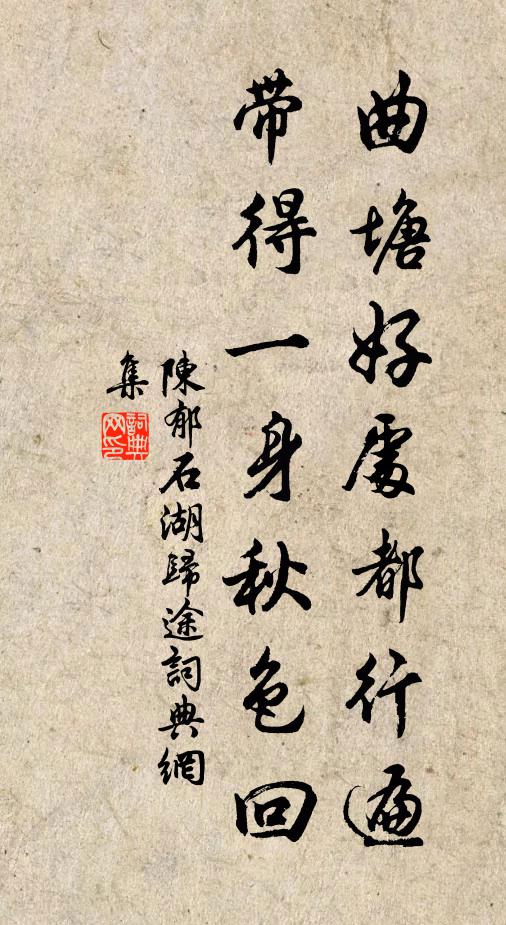 曲塘好處都行遍
带得一身秋色回
陳郁石湖歸途詞典網
集
詞典网印